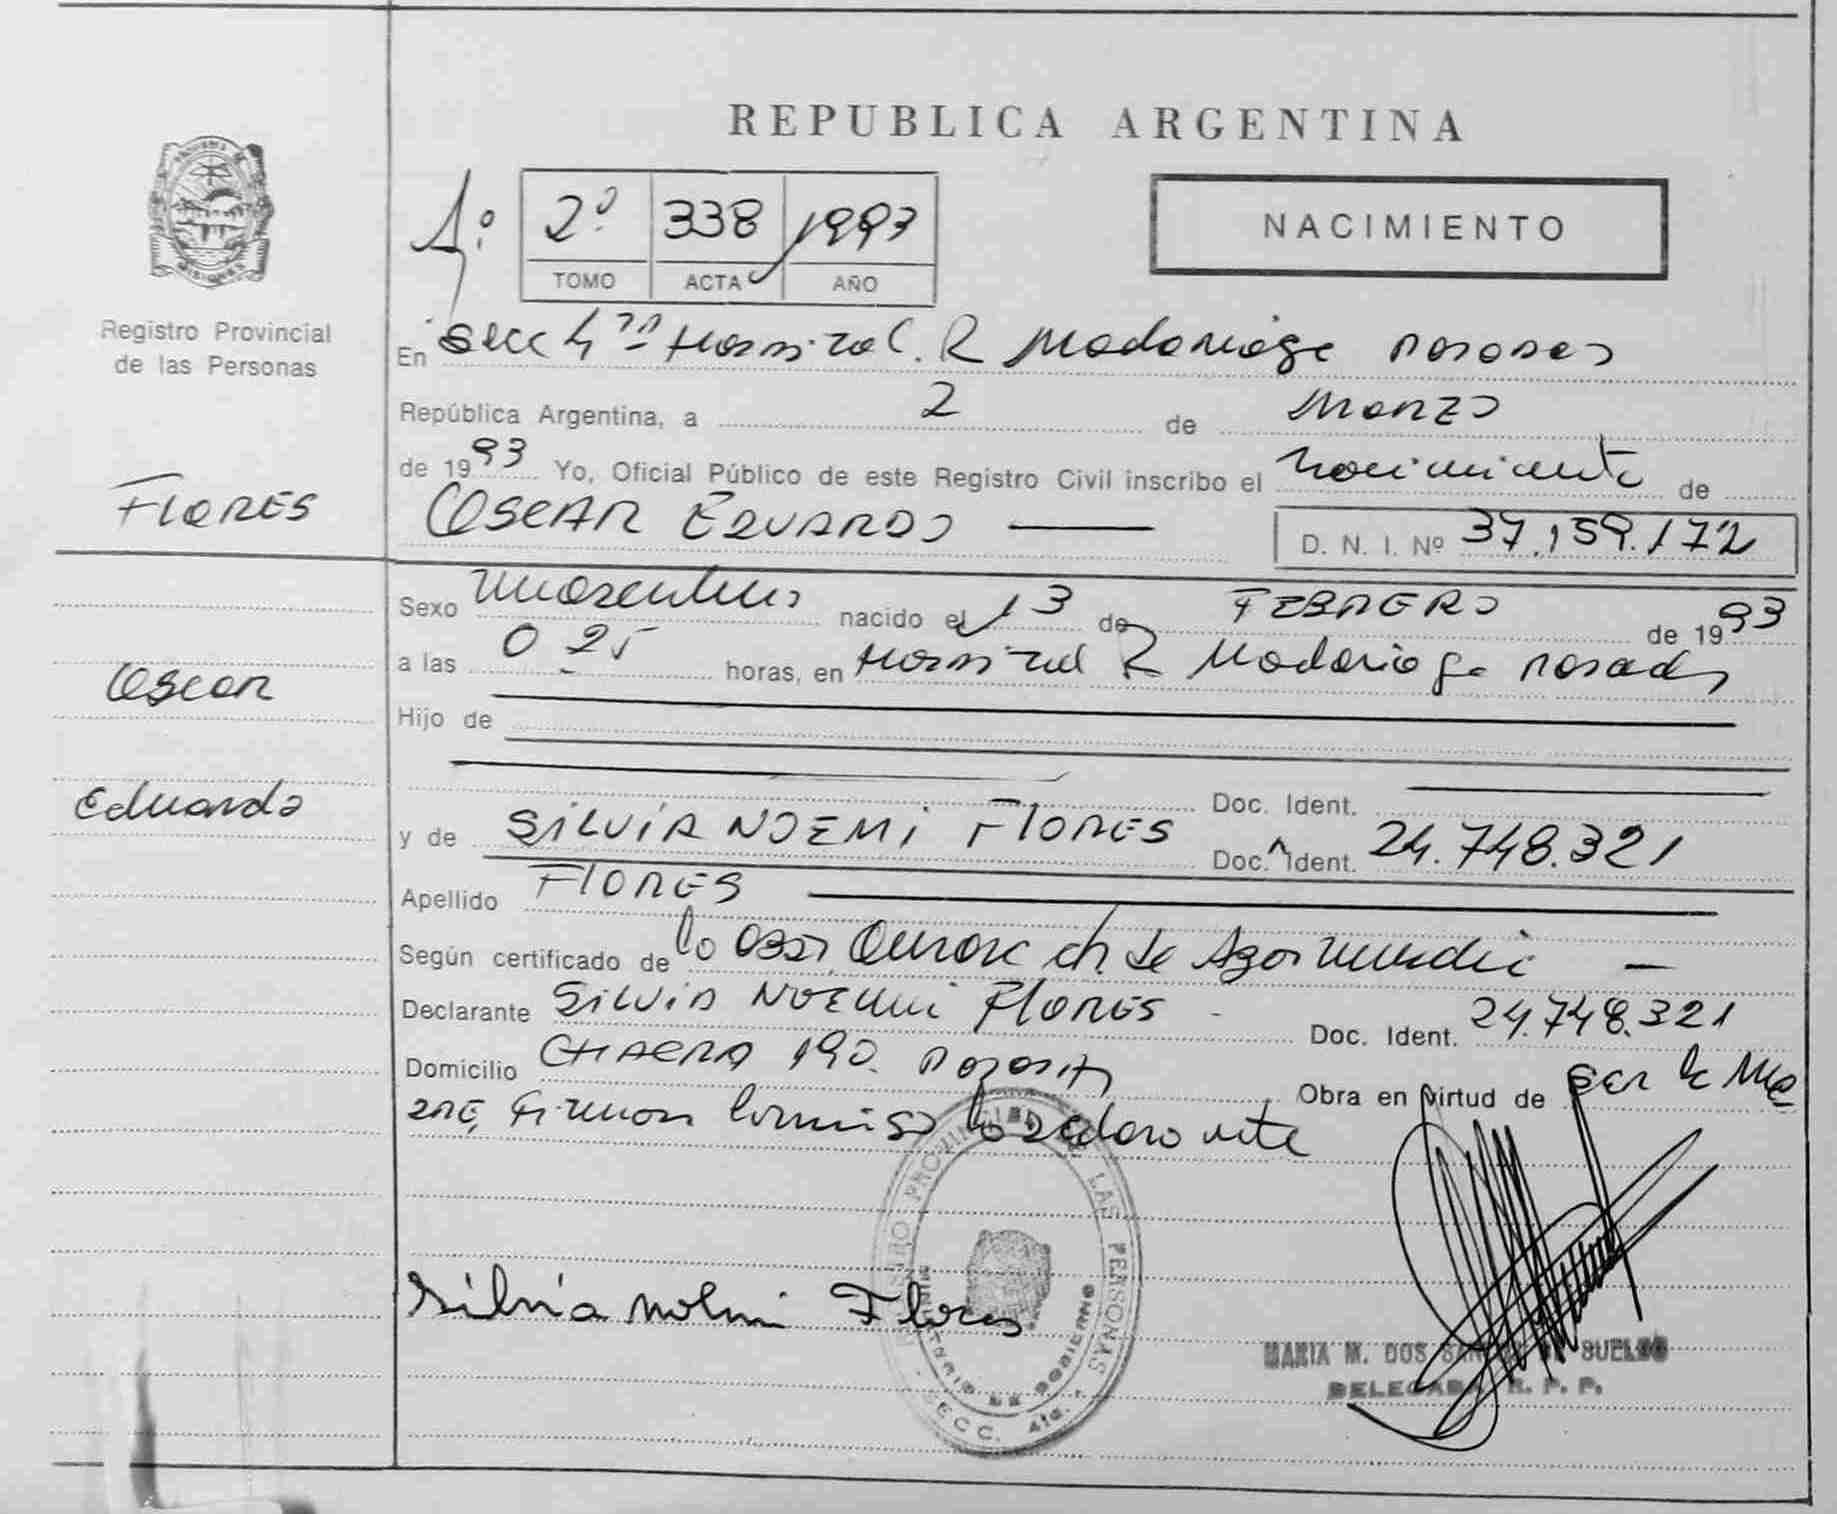 REPUBLICA ARGENTINA
1º 2º 338 1993
TOMO ACTA AÑO
NACIMIENTO
Registro Provincial
de las Personas
En Secc 4ta Hospital. R Madariaga Posadas
República Argentina, a 2 de Marzo
de 1993 Yo, Oficial Público de este Registro Civil inscribo el nacimiento de
FLORES
OSCAR EDUARDO
D. N. I. Nº 37.159.172
Sexo masculino nacido el 13 de FEBRERO de 1993
a las 0 25 horas, en Hospital R Madariaga Posadas
Oscar
Hijo de
Doc. Ident.
Eduardo
y de SILVIA NOEMI FLORES Doc. Ident. 24.748.321
Apellido FLORES
Según certificado de la Obst.
Declarante SILVIA NOEMI FLORES Doc. Ident. 24.748.321
Domicilio CHACRA 190. Posadas Obra en virtud de ser la Ma
dre, Firman conmigo la declarante
Silvia Noemi Flores
REGISTRO PROVINCIAL DE LAS PERSONAS
MINISTERIO DE GOBIERNO
SECC. 4ta.
MARIA M. DOS SANTOS DE SUELDO
DELEGADA R. P. P.